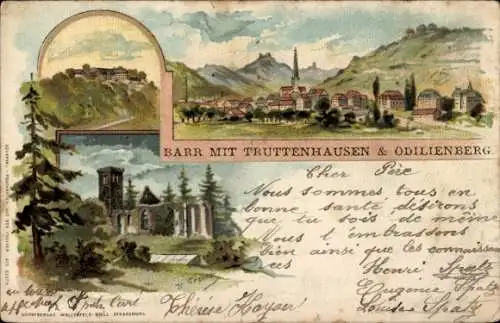 BARR MIT TRUTTENHAUSEN & ODILIENBERG.
Cher Père
Nous sommes tous en
bonne santé désirons
que tu sois de même
Nous t'embrassons
bien ainsi que les connaissan
ces Henri Spatz
Eugenie Spatz
Louise Spatz
Thérèse Hoyer